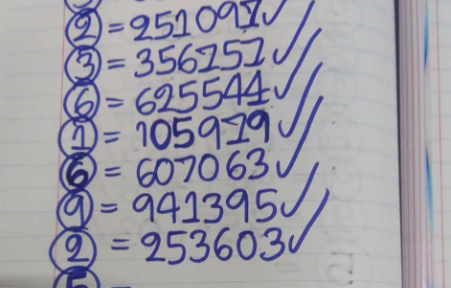 ② = 251091 ✓
③ = 356151 ✓
⑥ = 625544 ✓
① = 105919 ✓
⑥ = 607063 ✓
⑨ = 941395 ✓
② = 253603 ✓